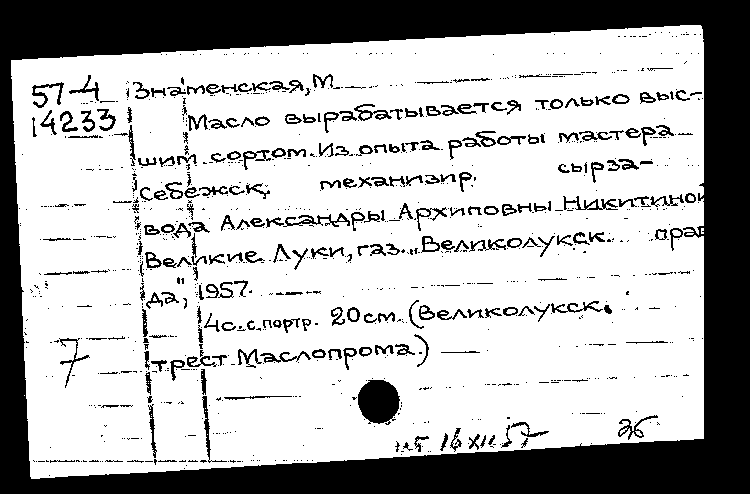 57-4 Знаменская, М
14233 Масло вырабатывается только выс-
шим сортом. Из опыта работы мастера
Себежск. механизир. сырза-
вода Александры Архиповны Никитиной
Великие Луки, газ. „Великолукск. прав
да", 1957.
4с. с портр. 20см. (Великолукск.
7 трест Маслопрома.)
16 XII 57